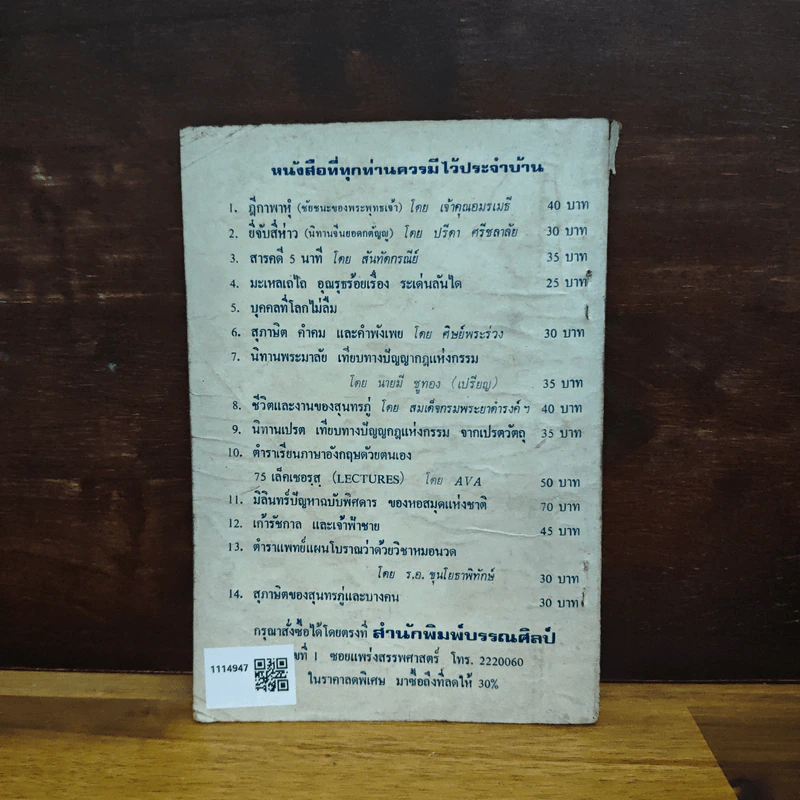 หนังสือที่ทุกท่านควรมีไว้ประจำบ้าน
1. ฎีกาพาหุํ (ชัยชนะของพระพุทธเจ้า) โดย เจ้าคุณอมรเมธี 40 บาท
2. ยี่จับสี่ห่าว (นิทานจีนยอดกตัญญู) โดย ปรีดา ศรีชลาลัย 30 บาท
3. สารคดี 5 นาที โดย สันทัดกรณีย์ 35 บาท
4. มะเหลเถไถ อุณรุธร้อยเรื่อง ระเด่นลันได 25 บาท
5. บุคคลที่โลกไม่ลืม
6. สุภาษิต คำคม และคำพังเพย โดย ศิษย์พระร่วง 30 บาท
7. นิทานพระมาลัย เทียบทางปัญญากฎแห่งกรรม
โดย นายมี ชูทอง (เปรียญ) 35 บาท
8. ชีวิตและงานของสุนทรภู่ โดย สมเด็จกรมพระยาดำรงค์ ฯ 40 บาท
9. นิทานเปรต เทียบทางปัญญกฎแห่งกรรม จากเปรตวัตถุ 35 บาท
10. ตำราเรียนภาษาอังกฤษด้วยตนเอง
75 เล็คเชอรฺสฺ (LECTURES) โดย AVA 50 บาท
11. มิลินทร์ปัญหาฉบับพิศดาร ของหอสมุดแห่งชาติ 70 บาท
12. เก้ารัชกาล และเจ้าฟ้าชาย 45 บาท
13. ตำราแพทย์แผนโบราณว่าด้วยวิชาหมอนวด
โดย ร.อ. ขุนโยธาพิทักษ์ 30 บาท
14. สุภาษิตของสุนทรภู่และบางคน 30 บาท
กรุณาสั่งซื้อได้โดยตรงที่ สำนักพิมพ์บรรณศิลป์
ขที่ 1 ซอยแพร่งสรรพศาสตร์ โทร. 2220060
ในราคาลดพิเศษ มาซื้อถึงที่ลดให้ 30%
1114947